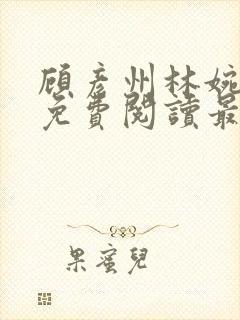 顧彥州林婉
免費閱讀最
果蜜兒